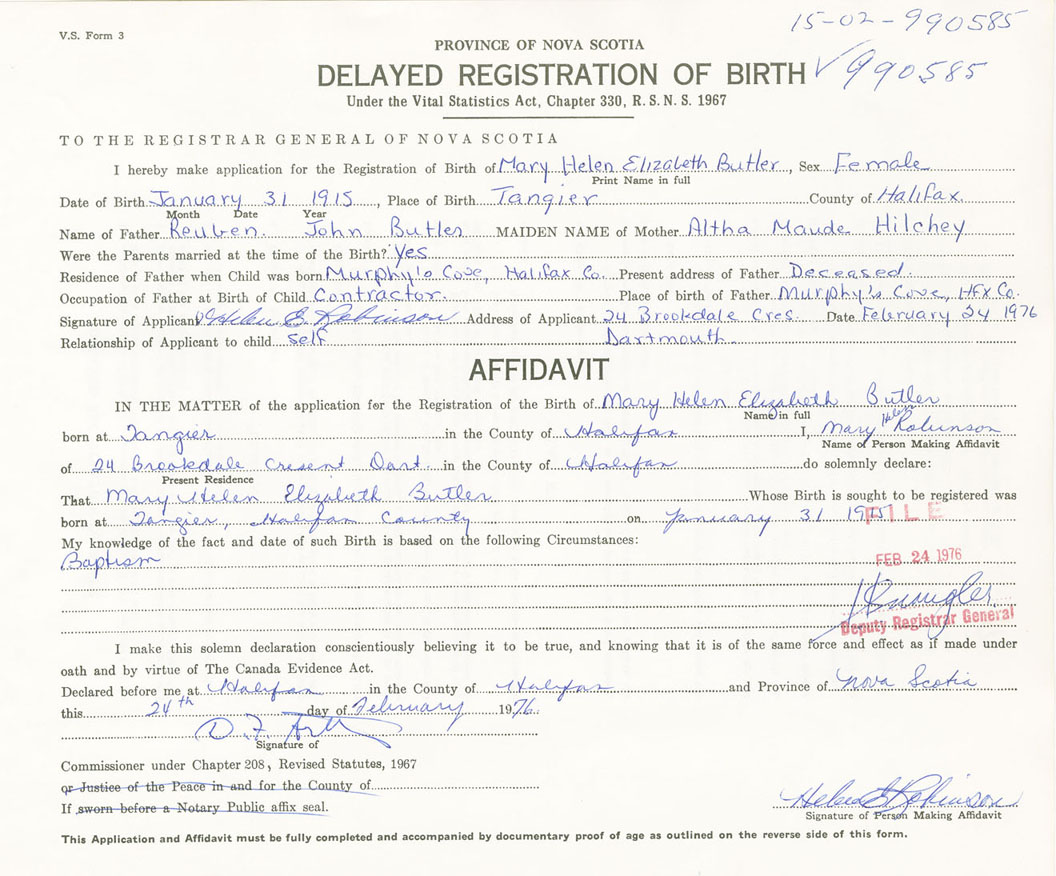 15-02-990585
V.S. Form 3
PROVINCE OF NOVA SCOTIA
DELAYED REGISTRATION OF BIRTH √990585
Under the Vital Statistics Act, Chapter 330, R.S.N.S. 1967
TO THE REGISTRAR GENERAL OF NOVA SCOTIA
I hereby make application for the Registration of Birth of Mary Helen Elizabeth Butler, Sex Female
Print Name in full
Date of Birth January 31 1915, Place of Birth Tangier County of Halifax.
Month Date Year
Name of Father Reuben John Butler MAIDEN NAME of Mother Altha Maude Hilchey
Were the Parents married at the time of the Birth? Yes
Residence of Father when Child was born Murphy's Cove, Halifax Co. Present address of Father Deceased.
Occupation of Father at Birth of Child Contractor. Place of birth of Father Murphy's Cove, HFX Co.
Signature of Applicant Helen E Robinson Address of Applicant 24 Brookdale Cres. Date February 24 1976
Relationship of Applicant to child self Dartmouth
AFFIDAVIT
IN THE MATTER of the application for the Registration of the Birth of Mary Helen Elizabeth Butler
Name in full
born at Tangier in the County of Halifax I, Mary Helen Robinson
Name of Person Making Affidavit
of 24 Brookdale Cresent Dart. in the County of Halifax do solemnly declare:
Present Residence
That Mary Helen Elizabeth Butler Whose Birth is sought to be registered was
born at Tangier, Halifax County on January 31 1915
FILE
My knowledge of the fact and date of such Birth is based on the following Circumstances:
Baptism
FEB 24 1976
Deputy Registrar General
I make this solemn declaration conscientiously believing it to be true, and knowing that it is of the same force and effect as if made under
oath and by virtue of The Canada Evidence Act.
Declared before me at Halifax in the County of Halifax and Province of Nova Scotia
this 24th day of February 1976.
Signature of
Commissioner under Chapter 208, Revised Statutes, 1967
or Justice of the Peace in and for the County of
If sworn before a Notary Public affix seal.
Helen E Robinson
Signature of Person Making Affidavit
This Application and Affidavit must be fully completed and accompanied by documentary proof of age as outlined on the reverse side of this form.